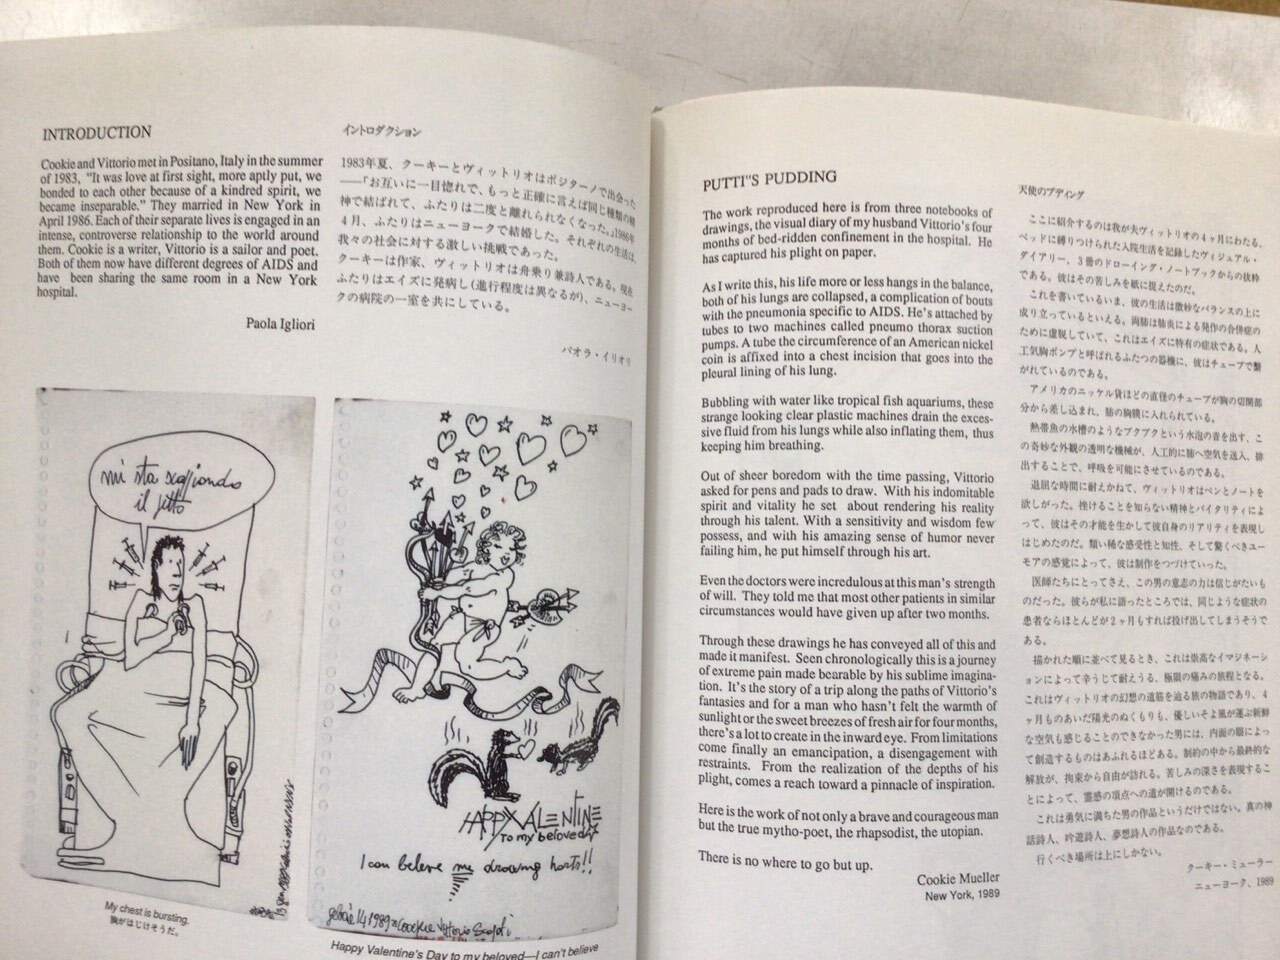 INTRODUCTION
Cookie and Vittorio met in Positano, Italy in the summer
of 1983, "It was love at first sight, more aptly put, we
bonded to each other because of a kindred spirit, we
became inseparable." They married in New York in
April 1986. Each of their separate lives is engaged in an
intense, controverse relationship to the world around
them. Cookie is a writer, Vittorio is a sailor and poet.
Both of them now have different degrees of AIDS and
have been sharing the same room in a New York
hospital.
Paola Igliori
イントロダクション
1983年夏、クーキーとヴィットリオはポジターノで出会った
──「お互いに一目惚れで、もっと正確に言えば同じ種類の精
神で結ばれて、ふたりは二度と離れられなくなった。」1986年
4月、ふたりはニューヨークで結婚した。それぞれの生活は、
我々の社会に対する激しい挑戦であった。
クーキーは作家、ヴィットリオは舟乗り兼詩人である。現在
ふたりはエイズに発病し(進行程度は異なるが)、ニューヨー
クの病院の一室を共にしている。
パオラ・イリオリ
mi sta
il
My chest is bursting.
胸がはじけそうだ。
HAPPY VALENTINE
To my beloved
I can beleve me drawing harts!!
14 1989 Cookie Vittorio Scarpati
Happy Valentine's Day to my beloved—I can't believe
PUTTI"S PUDDING
The work reproduced here is from three notebooks of
drawings, the visual diary of my husband Vittorio's four
months of bed-ridden confinement in the hospital. He
has captured his plight on paper.
As I write this, his life more or less hangs in the balance,
both of his lungs are collapsed, a complication of bouts
with the pneumonia specific to AIDS. He's attached by
tubes to two machines called pneumo thorax suction
pumps. A tube the circumference of an American nickel
coin is affixed into a chest incision that goes into the
pleural lining of his lung.
Bubbling with water like tropical fish aquariums, these
strange looking clear plastic machines drain the exces-
sive fluid from his lungs while also inflating them, thus
keeping him breathing.
Out of sheer boredom with the time passing, Vittorio
asked for pens and pads to draw. With his indomitable
spirit and vitality he set about rendering his reality
through his talent. With a sensitivity and wisdom few
possess, and with his amazing sense of humor never
failing him, he put himself through his art.
Even the doctors were incredulous at this man's strength
of will. They told me that most other patients in similar
circumstances would have given up after two months.
Through these drawings he has conveyed all of this and
made it manifest. Seen chronologically this is a journey
of extreme pain made bearable by his sublime imagina-
tion. It's the story of a trip along the paths of Vittorio's
fantasies and for a man who hasn't felt the warmth of
sunlight or the sweet breezes of fresh air for four months,
there's a lot to create in the inward eye. From limitations
come finally an emancipation, a disengagement with
restraints. From the realization of the depths of his
plight, comes a reach toward a pinnacle of inspiration.
Here is the work of not only a brave and courageous man
but the true mytho-poet, the rhapsodist, the utopian.
There is no where to go but up.
Cookie Mueller
New York, 1989
天使のプディング
ここに紹介するのは我が夫ヴィットリオの4ヶ月にわたる、
ベッドに縛りつけられた入院生活を記録したヴィジュアル・
ダイアリー、3冊のドローイング・ノートブックからの抜粋
である。彼はその苦しみを紙に捉えたのだ。
これを書いているいま、彼の生活は微妙なバランスの上に
成り立っているといえる。両肺は肺炎による発作の合併症の
ために虚脱していて、これはエイズに特有の症状である。人
工気胸ポンプと呼ばれるふたつの器機に、彼はチューブで繋
がれているのである。
アメリカのニッケル貨ほどの直径のチューブが胸の切開部
分から差し込まれ、肺の胸膜に入れられている。
熱帯魚の水槽のようなブクブクという水泡の音を出す、こ
の奇妙な外観の透明な機械が、人工的に肺へ空気を送入、排
出することで、呼吸を可能にさせているのである。
退屈な時間に耐えかねて、ヴィットリオはペンとノートを
欲しがった。挫けることを知らない精神とバイタリティによ
って、彼はその才能を生かして彼自身のリアリティを表現し
はじめたのだ。類い稀な感受性と知性、そして驚くべきユー
モアの感覚によって、彼は制作をつづけていった。
医師たちにとってさえ、この男の意志の力は信じがたいも
のだった。彼らが私に語ったところでは、同じような症状の
患者ならほとんどが2ヶ月もすれば投げ出してしまうそうで
ある。
描かれた順に並べて見るとき、これは崇高なイマジネーシ
ョンによって辛うじて耐えうる、極限の痛みの旅程となる。
これはヴィットリオの幻想の道筋を辿る旅の物語であり、4
ヶ月ものあいだ陽光のぬくもりも、優しいそよ風が運ぶ新鮮
な空気も感じることのできなかった男には、内面の眼によっ
て創造するものはあふれるほどある。制約の中から最終的な
解放が、拘束から自由が訪れる。苦しみの深さを表現するこ
とによって、霊感の頂点への道が開けるのである。
これは勇気に満ちた男の作品というだけではない。真の神
話詩人、吟遊詩人、夢想詩人の作品なのである。
行くべき場所は上にしかない。
クーキー・ミューラー
ニューヨーク、1989